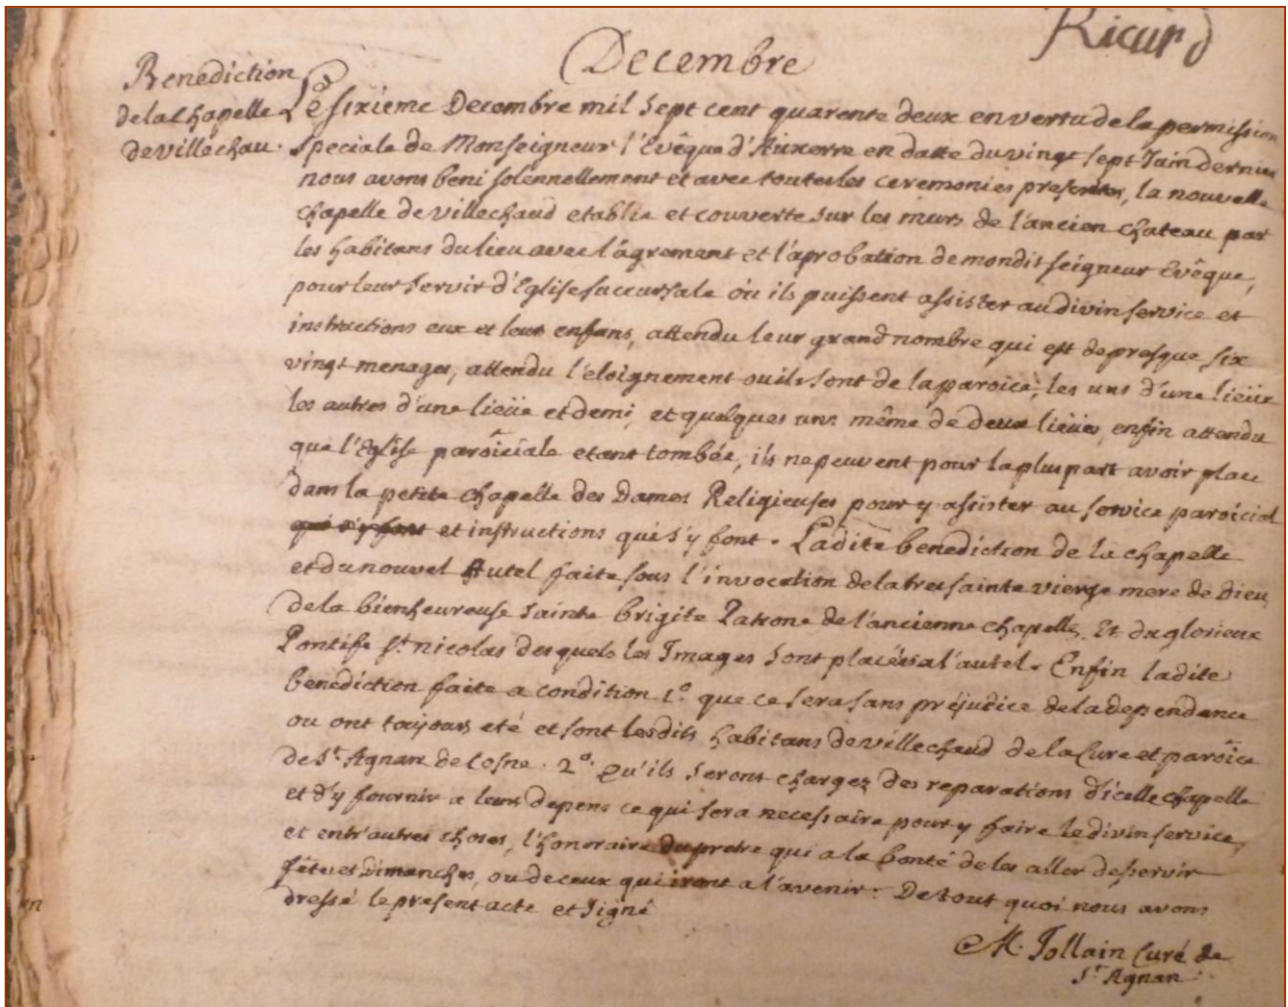 Ricard
Decembre
Benediction
de la Chapelle
de villechau.
Le sixieme Decembre mil sept cent quarente deux en vertu de la permission
speciale de Monseigneur l'Evêque d'Auxerre en datte du vingt sept Juin dernier
nous avons beni solennellement et avec toutes les ceremonies prescrites, la nouvelle
chapelle de villechaud etablie et couverte sur les murs de l'ancien chateau par
les habitans du lieu avec l'agrement et l'aprobation de mondit seigneur Evêque,
pour leur servir d'Eglise succursale ou ils puissent assister au divin service et
instructions eux et leurs enfans, attendu leur grand nombre qui est de presque six
vingt menages, attendu l'eloignement ou ils sont de la paroice, les uns d'une lieüe
les autres d'une lieüe et demi, et quelques uns même de deux lieües, enfin attendu
que l'Eglise paroiciale etant tombée, ils ne peuvent pour la plus part avoir place
dans la petite chapelle des Dames Religieuses pour y assister au service paroicial
qui s'y font et instructions qui s'y font. Ladite benediction de la chapelle
et du nouvel Autel faite sous l'invocation de la tres sainte vierge mere de Dieu,
de la bienheureuse sainte brigite Patrone de l'ancienne chapelle, Et du glorieux
Pontife st. nicolas desquels les Images sont placées a l'autel. Enfin ladite
benediction faite a condition 1º. que ce sera sans préjudice de la dependance
ou ont toujours eté et sont lesdits habitans de villechaud de la Cure et paroice
de St. Agnan de Cosne. 2º. qu'ils seront chargez des reparations d'icelle chapelle
et d'y fournir a leurs depens ce qui sera necessaire pour y faire le divin service,
et entr'autres choses, l'honoraire du pretre qui a la bonté de les aller desservir
fêtes et dimanches, ou de ceux qui iront a l'avenir. De tout quoi nous avons
dressé le present acte et signé
M. Jollain Curé de
St. Agnan